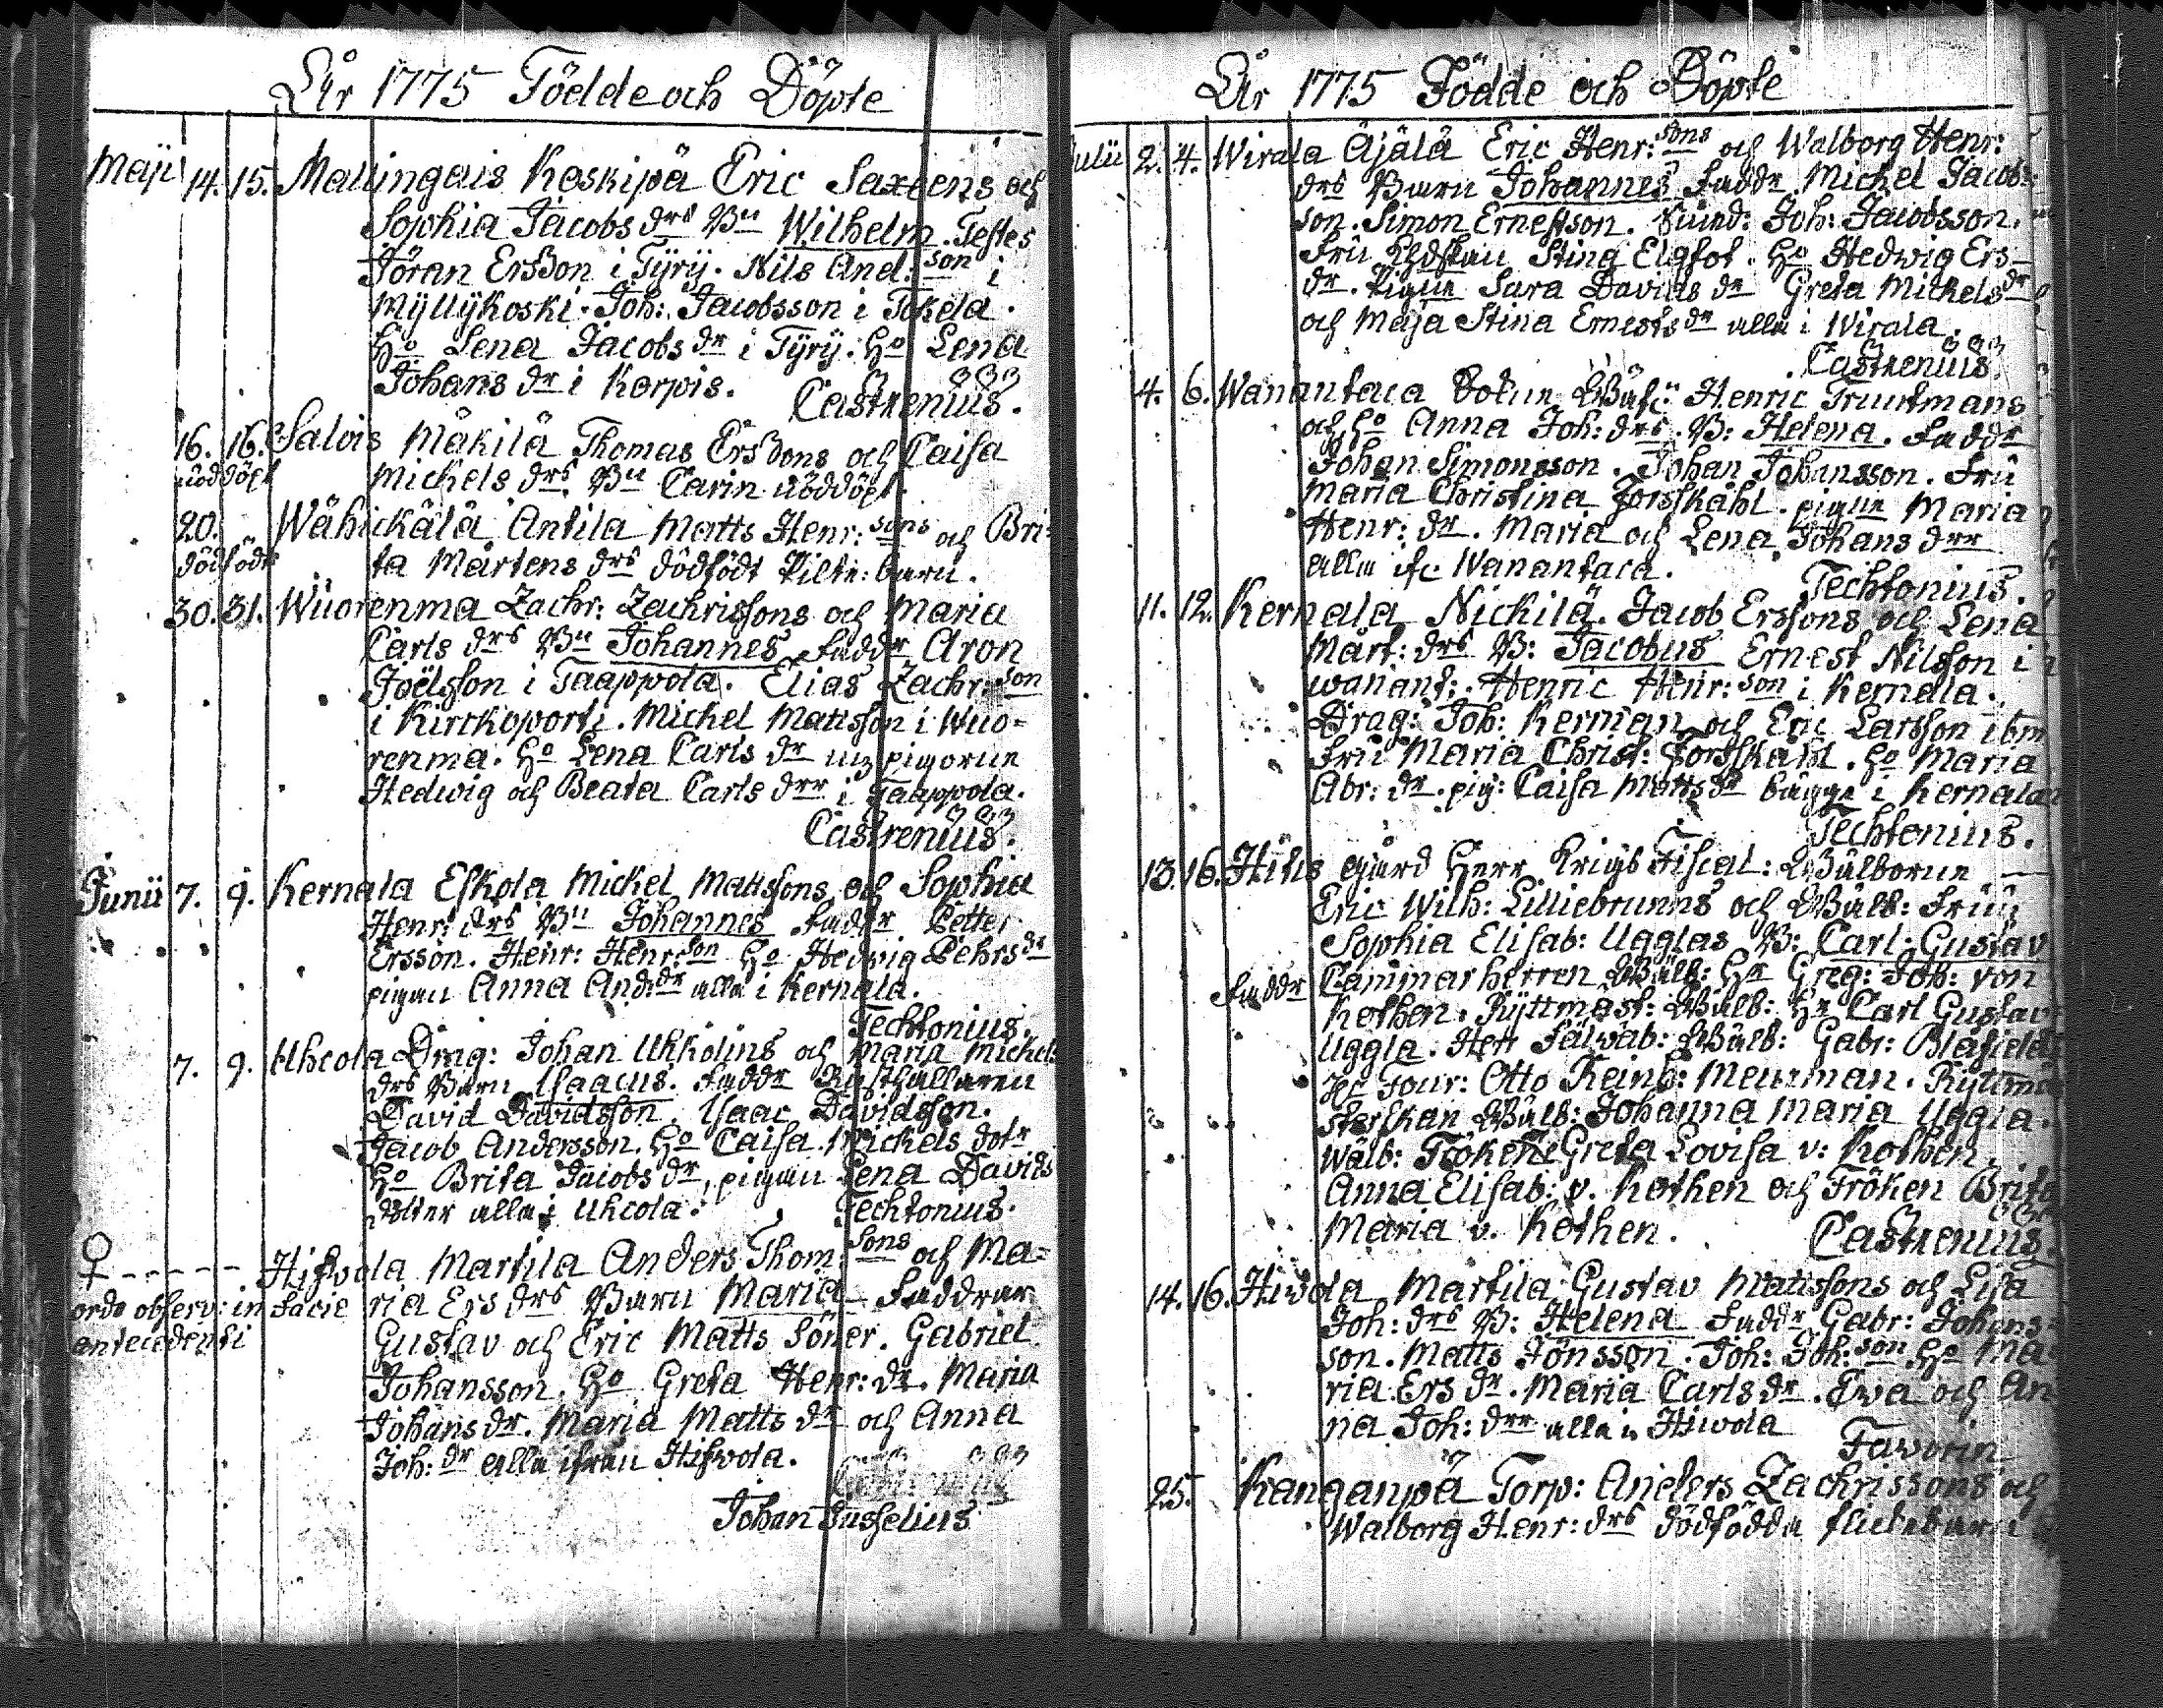 År 1775 Födde och Döpte
Maji 14. 15. Mallingais Koskipä Eric Saxbens och
Sophia Jacobs drs Bn Wilhelm. Testes
Jöran Ersson i Tyry. Nils And: son i
Myllykoski. Joh: Jacobsson i Tokela.
Ho Lena Jacobs dr i Tyry. Ho Lena
Johans dr i Korpis. Castrenius.
16. 16. Salois Mäkilä Thomas Erssons och Caisa
nöddöpt Mickels drs Bn Carin nöddöpt.
20. Wähickälä Antila Matts Henr: sons och Bri-
dödfödt ta Mårtens drs dödfödt Pilte-barn.
30. 31. Wuorenma Zachr: Zachrissons och Maria
Carls drs Bn Johannes Faddr Aron
Joëlsson i Taappola. Elias Zachr: son
i Kirckoporti. Michel Mattsson i Wuo-
renma. Ho Lena Carls dr pigorne
Hedwig och Beata Carls drr i Taappola.
Castrenius.
Junii 7. 9. Kernala Eskola Mickel Mattssons och Sophia
Henr: drs Bn Johannes Faddr Petter
Ersson. Henr: Henr: son Ho Hedwig Pehrs dr
pigan Anna And: dr alla i Kernala.
Techtonius.
7. 9. Uhcola Drag: Johan Uhkolins och Maria Mickels
drs Barn Isaacus. Faddr Rusthållaren
David Davidsson. Isaac Davidsson.
Jacob Andersson. Ho Caisa Mickels dotr
Ho Brita Jacobs dr, pigan Lena Davids
dotter alla i Uhcola. Techtonius.
♀ - - - - - Hifvola Martila Anders Thom: sons och Ma-
ordo observ: in facie ria Ers drs Barn Maria Faddrar
antecedenti Gustav och Eric Matts Söner. Gabriel
Johansson. Ho Greta Henr: dr. Maria
Johans dr. Maria Matts dr och Anna
Joh: dr alla ifrån Hifvola.
Johan Jusselius
År 1775 Födde och Döpte
Julii 2. 4. Wirala Äjälä Eric Henr: sons och Walborg Henr:
drs Barn Johannes Faddr Michel Jacobs-
son. Simon Ernestson. Joh: Jacobsson.
Fru Stina Elgfot. Ho Hedwig Ers-
dr. Pigan Sara Davids dr Greta Mickels dr
och Maja Stina Ernests dr alla i Wirala.
Castrenius.
4. 6. Wanantaca Henric Truutmans
och Ho Anna Joh: drs B: Helena. Faddr
Johan Simonsson. Johan Johansson. Fru
Maria Christina Forsskåhl. pigan Maria
Henr: dr. Maria och Lena Johans drr
alla ifr. Wanantaca. Techtonius.
11. 12. Kernala Nickilä. Jacob Erssons och Lena
Mårt: drs B: Jacobus Ernest Nilsson i
Wanant:. Henric Henr: son i Kernala.
Drag: Joh: Kerman och Eric Larsson ibm
Fru Maria Christ: Forsskåhl. Ho Maria
Abr: dr. pig: Caisa Matts dr bägge i Kernala
Techtonius.
13. 16. Hätis gård Herr Krigs Fiscal: Wälborne
Eric Wilh: Lilliebrunns och Wälb: Fru
Sophia Elisab: Ugglas B: Carl Gustav
Faddr Cammarherren Wälb: Hr Greg: Joh: von
Kothen. Ryttmäst: Wälb: Hr Carl Gustav
Uggla. Herr Fältväb: Wälb: Gabr: Blåfield
Hr Four: Otto Reinh: Meurman. Ryttmä-
sterskan Wälb: Johanna Maria Uggla.
Wälb: Fröken Greta Lovisa v: Kothen.
Anna Elisab: v. Kothen och Fröken Brita
Maria v. Kothen. Castrenius.
14. 16. Hiwola Martila Gustav Mattssons och Lisa
Joh: drs B: Helena Faddr Gabr: Johans-
son. Matts Jönsson. Joh: Joh: son Ho Ma-
ria Ers dr. Maria Carls dr. Ewa och An
na Joh: drr alla i Hiwola
Faworin
25. Kanganpä Torp: Anders Zachrissons och
Walborg Henr: drs dödfödda flickebarn